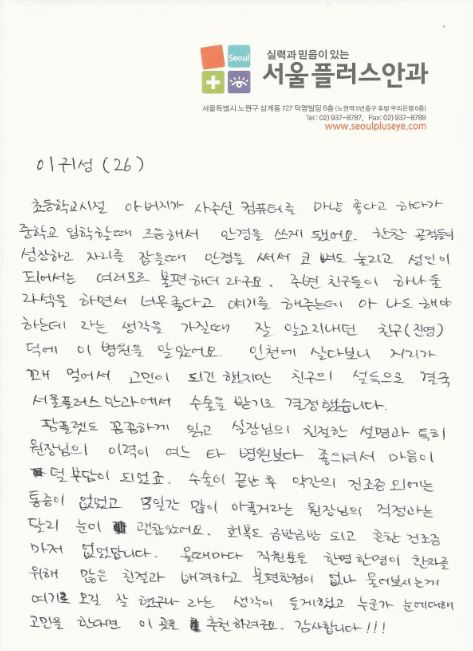 Seoul
실력과 믿음이 있는
서울플러스안과
서울특별시 노원구 상계동 727 덕영빌딩 6층 (노원역 5번출구 후방 우리은행 6층)
Tel : 02) 937-8787, Fax: 02) 937-8789
www.seoulpluseye.com
이귀성 (26)
초등학교시절 아버지가 사주신 컴퓨터를 마냥 좋다고 하다가
중학교 입학할때 즈음해서 안경을 쓰게 됐어요. 한창 골격들이
성장하고 자리를 잡을때 안경을 써서 코 뼈도 눌리고 성인이
되어서는 여러모로 불편하더라구요. 주변 친구들이 하나둘
라섹을 하면서 너무좋다고 얘기를 해주는데 아 나도 해야
하는데 라는 생각을 가질때 잘 알고지내던 친구(진명)
덕에 이 병원을 알았어요. 인천에 살다보니 거리가
꽤 멀어서 고민이 되긴 했지만 친구의 설득으로 결국
서울플러스안과에서 수술을 받기로 결정했습니다.
팜플렛도 꼼꼼하게 읽고 실장님의 친절한 설명과 특히
원장님의 이력이 여느 타 병원보다 좋으셔서 마음이
덜 부담이 되었죠. 수술이 끝난 후 약간의 건조증 외에는
통증이 없었고 3일간 많이 아플거라는 원장님의 걱정과는
달리 눈이 괜찮았어요. 회복도 금방금방 되고 흔한 건조증
마저 없었답니다. 올때마다 직원분들 한명한명이 환자를
위해 많은 친절과 배려하고 불편한점이 없나 물어보시는게
여기로 오길 잘 했구나 라는 생각이 들게했고 누군가 눈에대해
고민을 한다면 이 곳을 추천하려구요. 감사합니다!!!